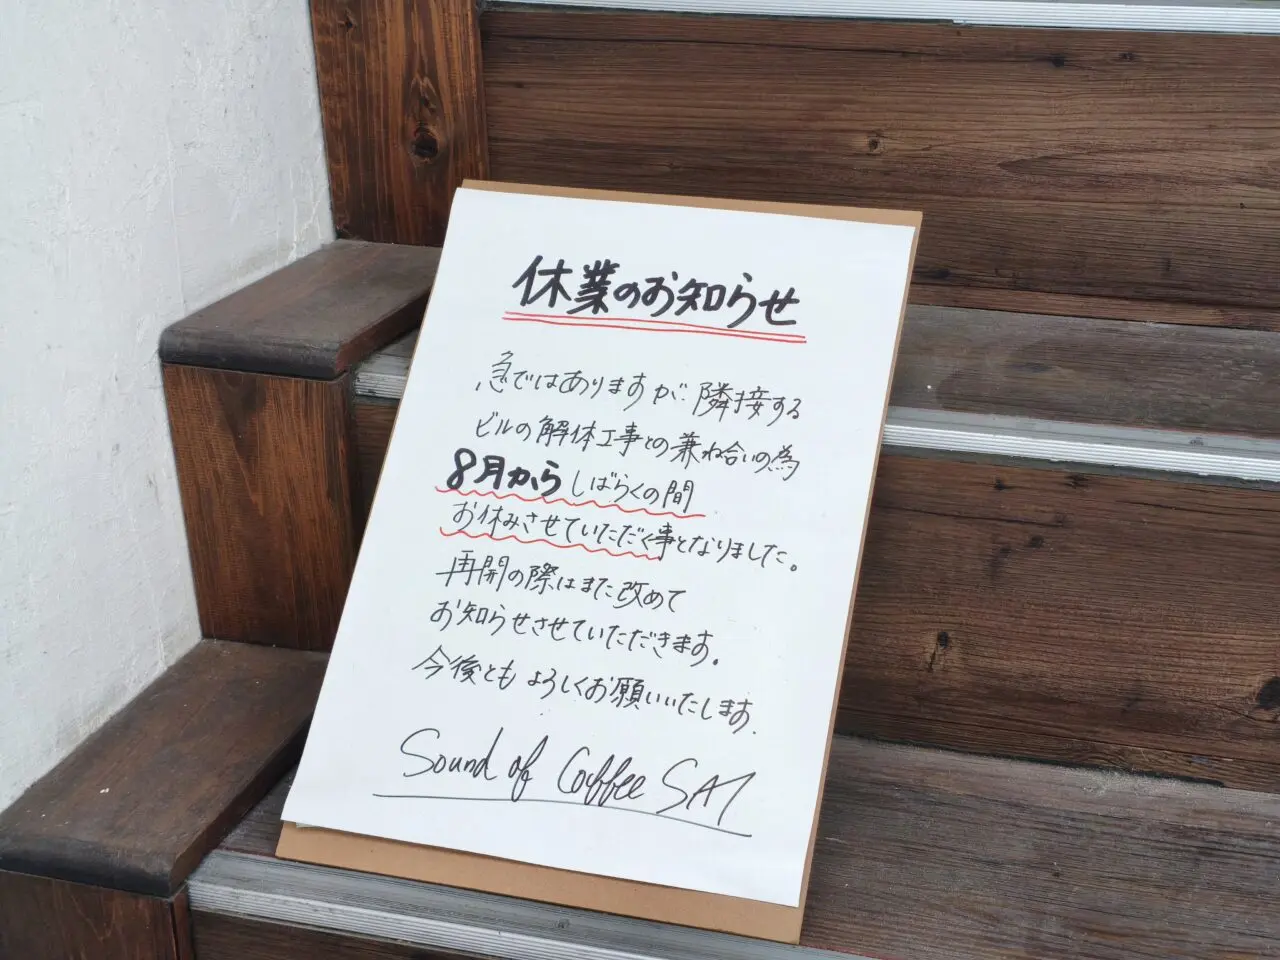 休業のお知らせ
急ではありますが、隣接する
ビルの解体工事との兼ね合いの為
8月からしばらくの間
お休みさせていただく事となりました。
再開の際はまた改めて
お知らせさせていただきます。
今後ともよろしくお願いいたします。
Sound of Coffee SAI